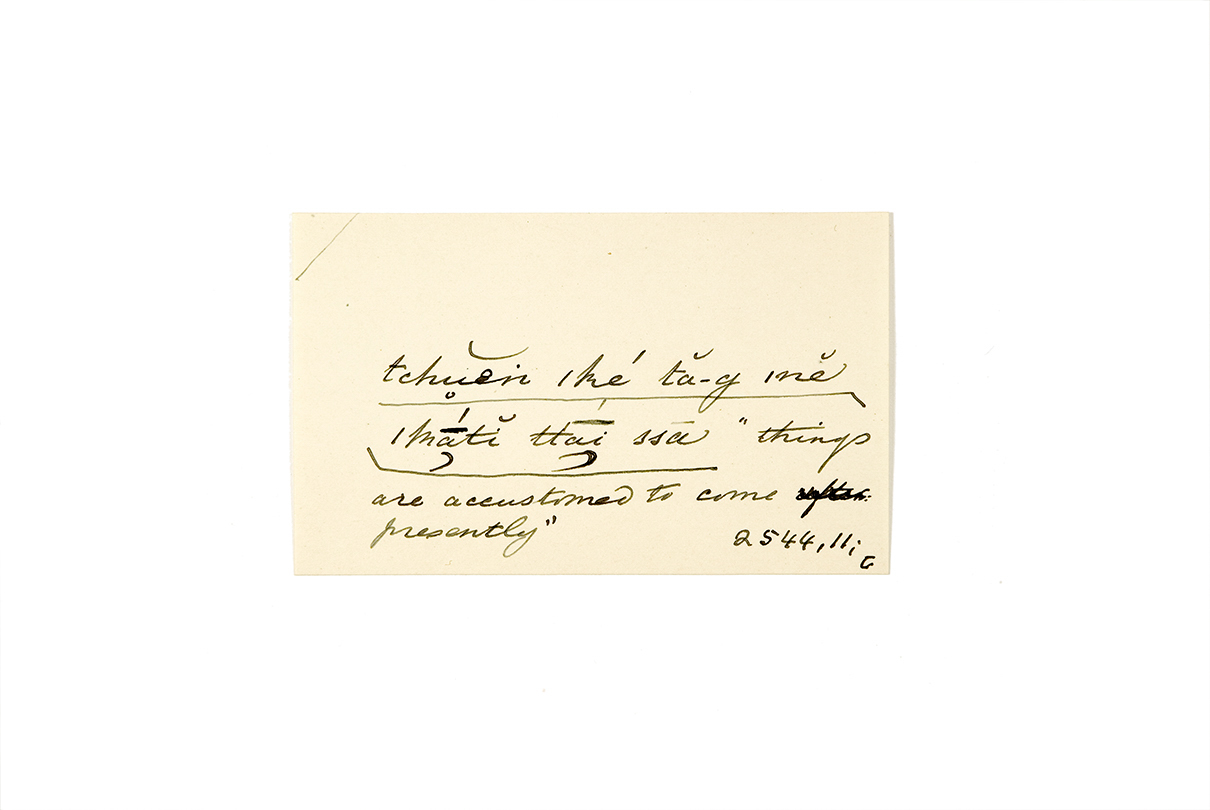 tchu̥ĕn ıké tă-g ınĕ
ıką̄́tĭ ttą̄́i ssā "things
are accustomed to come after
presently"
2544,11; G